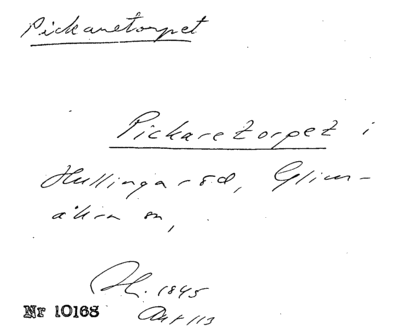 Pickaretorpet
Pickaretorpet i
Hullingaröd, Glim-
åkra sn,
H. 1845
Akt 113
Nr 10168